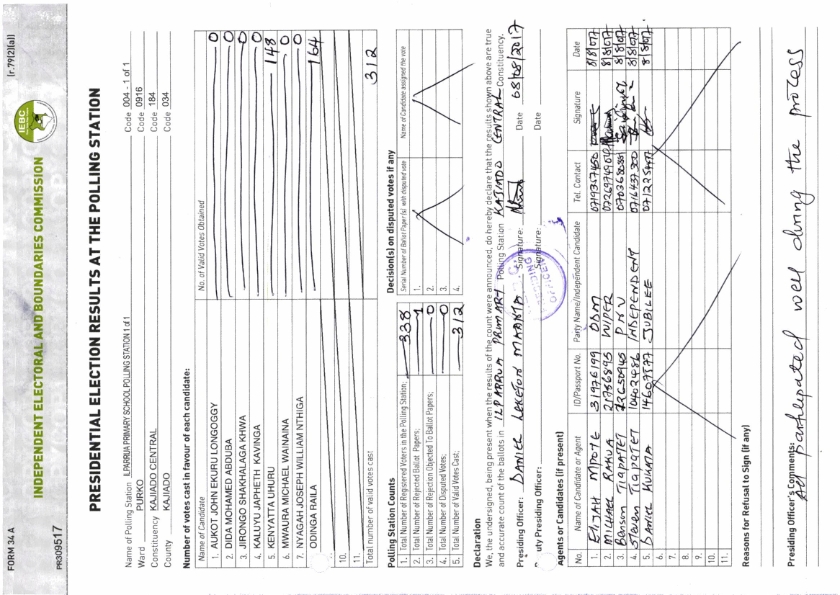 FORM 34 A
[r.79(2)(a)]
IEBC
INDEPENDENT ELECTORAL AND BOUNDARIES COMMISSION
PR309517
PRESIDENTIAL ELECTION RESULTS AT THE POLLING STATION
Name of Polling Station ILPARRUA PRIMARY SCHOOL POLLING STATION 1 of 1 Code 004 - 1 of 1
Ward PURKO Code 0916
Constituency KAJIADO CENTRAL Code 184
County KAJIADO Code 034
Number of votes cast in favour of each candidate:
Name of Candidate No. of Valid Votes Obtained
1. AUKOT JOHN EKURU LONGOGGY 0
2. DIDA MOHAMED ABDUBA 0
3. JIRONGO SHAKHALAGA KHWA 0
4. KALUYU JAPHETH KAVINGA 0
5. KENYATTA UHURU 148
6. MWAURA MICHAEL WAINAINA 0
7. NYAGAH JOSEPH WILLIAM NTHIGA 0
ODINGA RAILA 164
10.
11.
Total number of valid votes cast 312
Polling Station Counts
1. Total Number of Registered Voters in the Polling Station; 338
2. Total Number of Rejected Ballot Papers; 1
3. Total Number of Rejection Objected To Ballot Papers; 0
4. Total Number of Disputed Votes; 0
5. Total Number of Valid Votes Cast; 312
Decision(s) on disputed votes if any
Serial Number of Ballot Paper(s) with disputed vote Name of Candidate assigned the vote
1.
2.
3.
4.
Declaration
We, the undersigned, being present when the results of the count were announced, do hereby declare that the results shown above are true
and accurate count of the ballots in ILPARRUA PRIMARY Polling Station KAJIADO CENTRAL Constituency.
Presiding Officer: DANIEL LEKETON Signature: Date 08/08/2017
uty Presiding Officer: Signature: Date
PRESIDING OFFICER
Agents or Candidates (if present)
No. Name of Candidate or Agent ID/Passport No. Party Name/Independent Candidate Tel. Contact Signature Date
1. ELIJAH MPOTE 31976199 ODM 0719367450 8/8/07
2. MICHAEL RAKUA 21756895 WIPER 8/8/07
3. Benson TIAPATET 22650945 PNU 8/8/07
4. Steven TIAPATET 10402486 INDEPENDENT 0716437300 8/8/07
5. DANIEL KUKATA 14607577 JUBILEE 8/8/07
6.
7.
8.
9.
10.
11.
Reasons for Refusal to Sign (if any)
Presiding Officer's Comments:
All participated well during the process